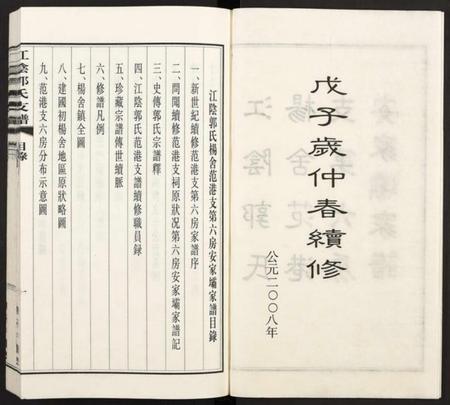 戊子歲仲春續修
公元二〇〇八年
江陰郭氏楊舍范港支第六房安家壩家譜目錄
一、新世紀續修范港支第六房家譜序
二、開闢續修范港支祠原狀况第六房安家壩家譜記
三、史傳郭氏宗譜釋
四、江陰郭氏范港支譜續修職員錄
五、珍藏宗譜傳世續脈
六、修譜凡例
七、楊舍鎮全圖
八、建國初楊舍地區原狀略圖
九、范港支六房分布示意圖
江陰郭氏支譜
目錄
一